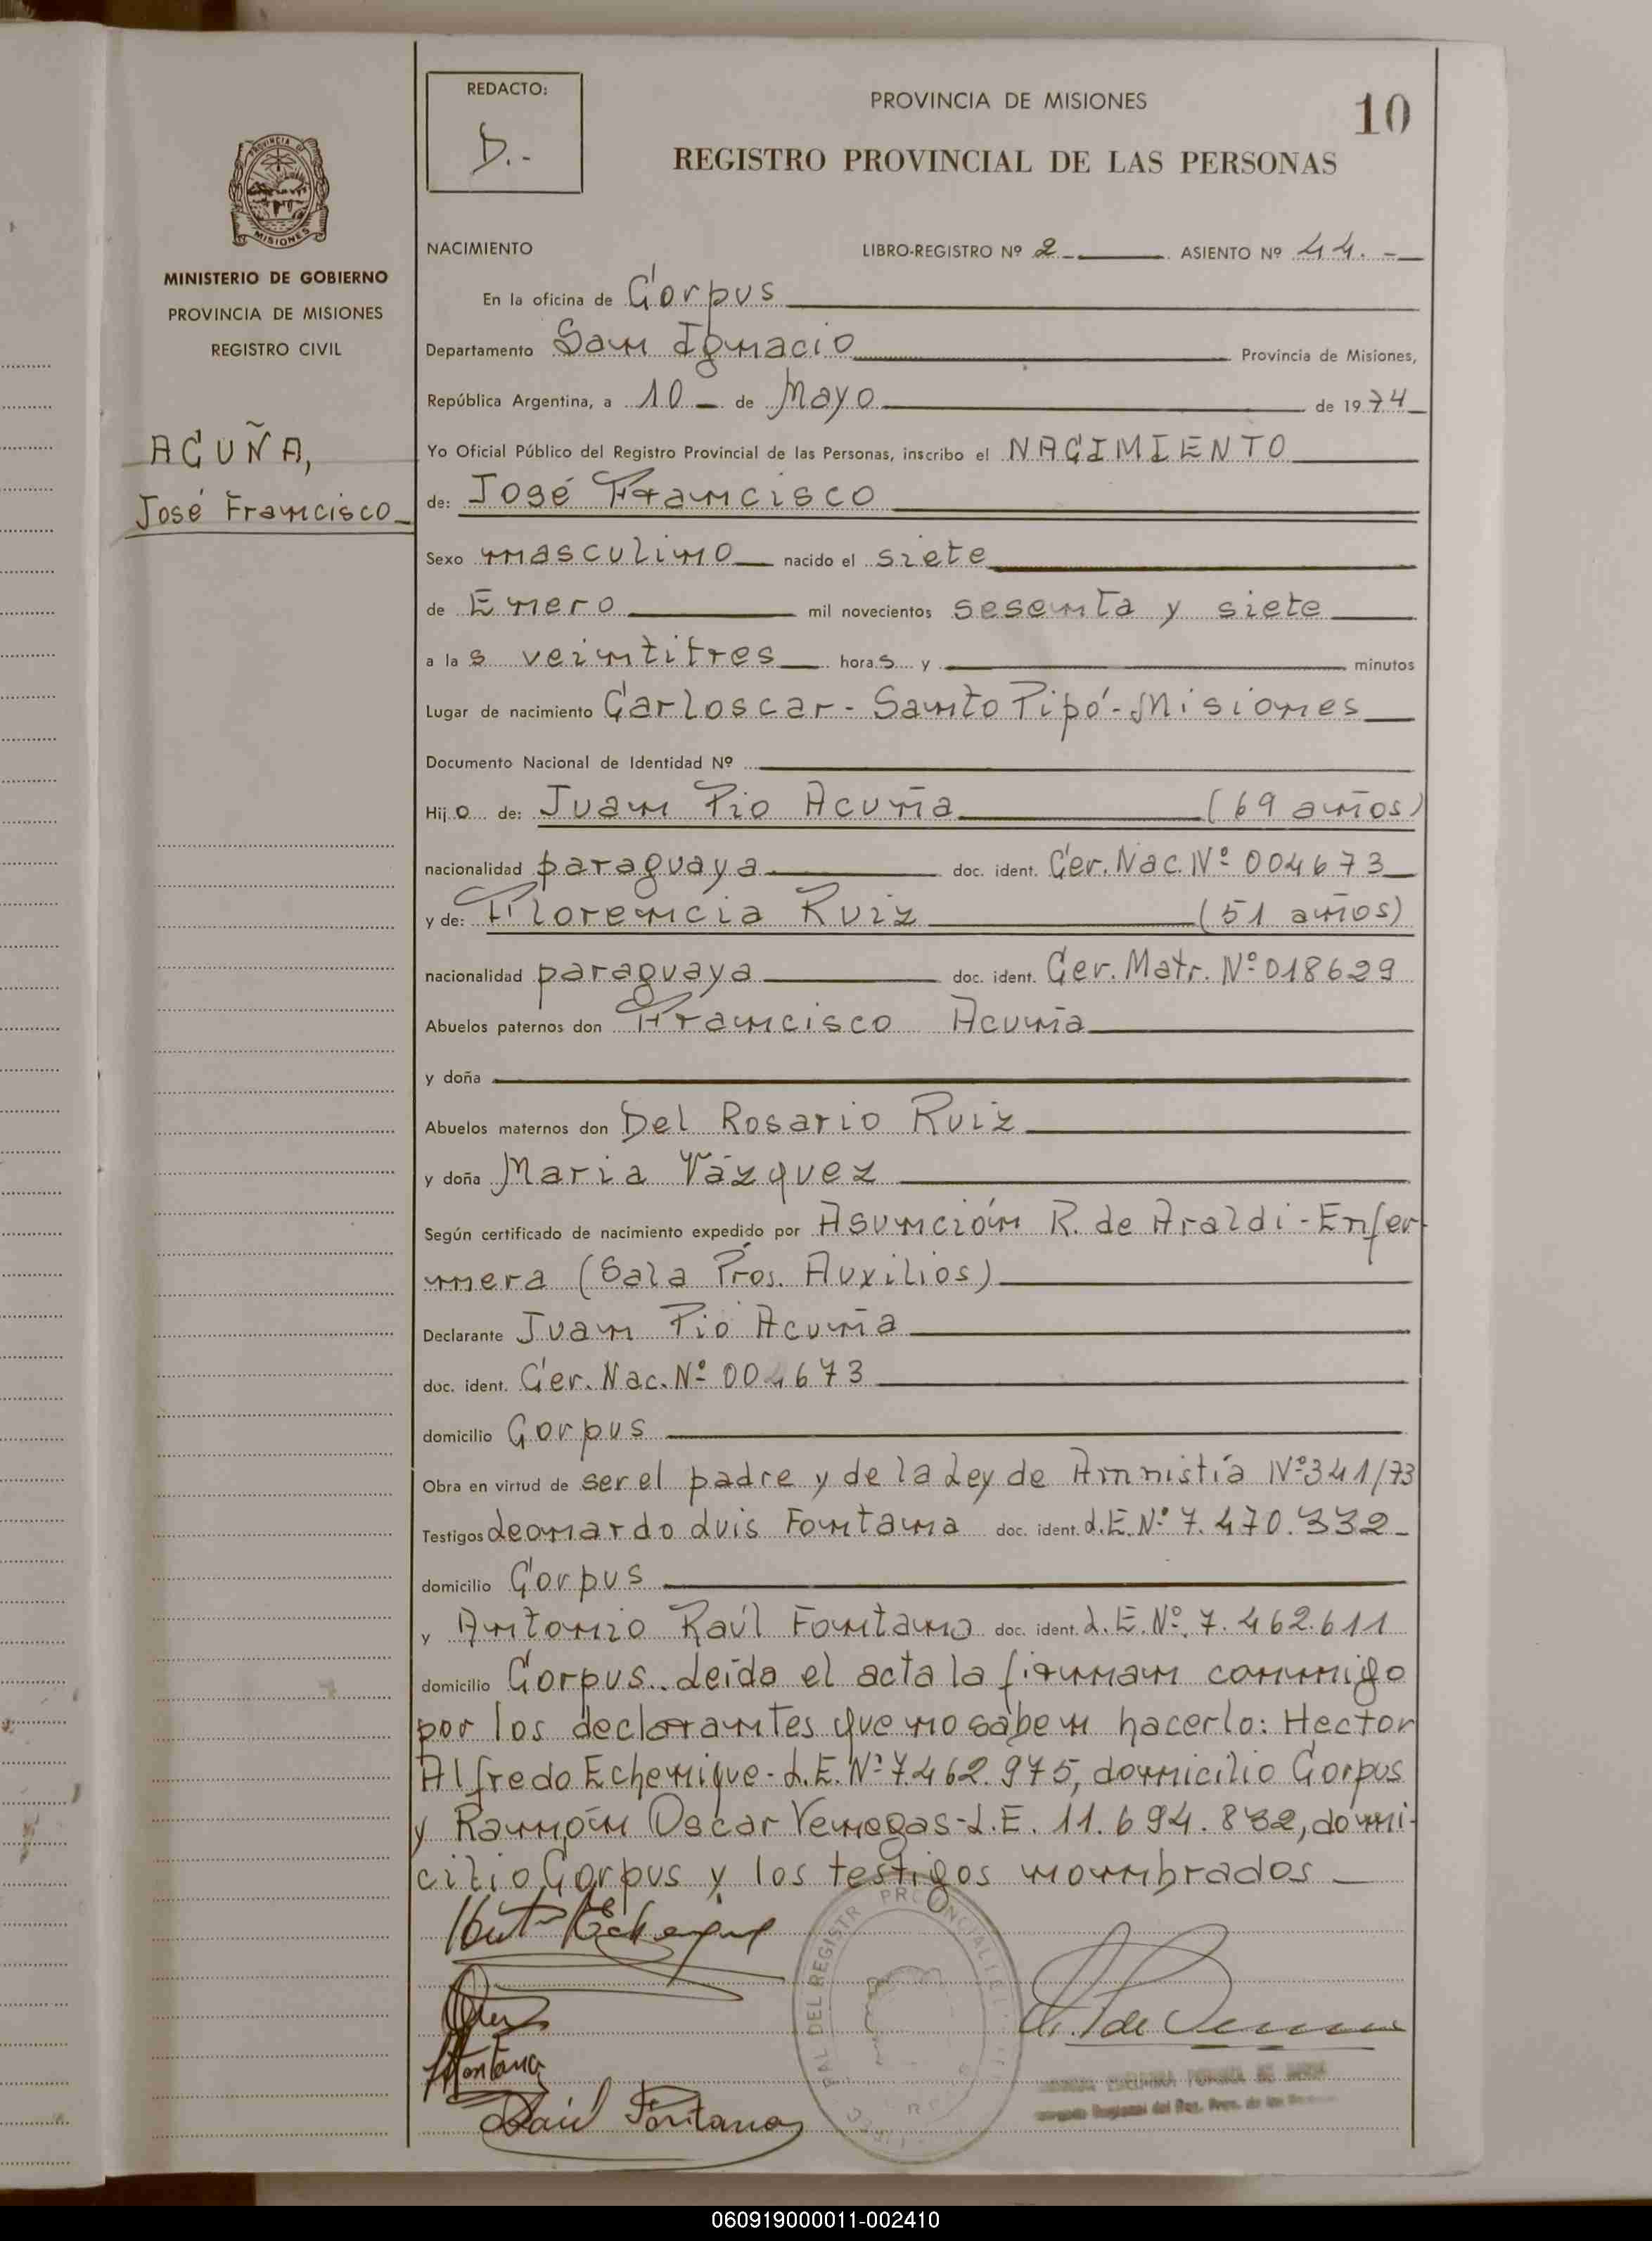 REDACTO:
D.-
PROVINCIA DE MISIONES
10
REGISTRO PROVINCIAL DE LAS PERSONAS
PROVINCIA DE
MISIONES
MINISTERIO DE GOBIERNO
PROVINCIA DE MISIONES
REGISTRO CIVIL
ACUÑA,
José Francisco
NACIMIENTO LIBRO-REGISTRO Nº 2.- ASIENTO Nº 44.-
En la oficina de Corpus
Departamento San Ignacio Provincia de Misiones,
República Argentina, a 10 de Mayo de 1974
Yo Oficial Público del Registro Provincial de las Personas, inscribo el NACIMIENTO
de: José Francisco
Sexo masculino nacido el siete
de Enero mil novecientos sesenta y siete
a las veintitres horas y minutos
Lugar de nacimiento Carloscar - Santo Pipó - Misiones
Documento Nacional de Identidad Nº
Hijo de: Juan Pio Acuña (69 años)
nacionalidad paraguaya doc. ident. Cer. Nac. Nº 004673
y de: Florencia Ruiz (51 años)
nacionalidad paraguaya doc. ident. Cer. Matr. Nº 018629
Abuelos paternos don Francisco Acuña
y doña
Abuelos maternos don Del Rosario Ruiz
y doña Maria Vázquez
Según certificado de nacimiento expedido por Asunción R. de Araldi - Enfer-
mera (Sala Pros. Auxilios)
Declarante Juan Pio Acuña
doc. ident. Cer. Nac. Nº 004673
domicilio Corpus
Obra en virtud de ser el padre y de la Ley de Amnistía Nº 341/73
Testigos Leonardo Luis Fontana doc. ident. L.E. Nº 7.470.332
domicilio Corpus
y Antonio Raúl Fontana doc. ident. L.E. Nº 7.462.611
domicilio Corpus. Leída el acta la firman conmigo
por los declarantes que no saben hacerlo: Hector
Alfredo Echenique - L.E. Nº 7.462.975, domicilio Corpus
y Ramón Oscar Venegas - L.E. 11.694.832, domi-
cilio Corpus y los testigos nombrados
Fontana
Raúl Fontana
060919000011-002410